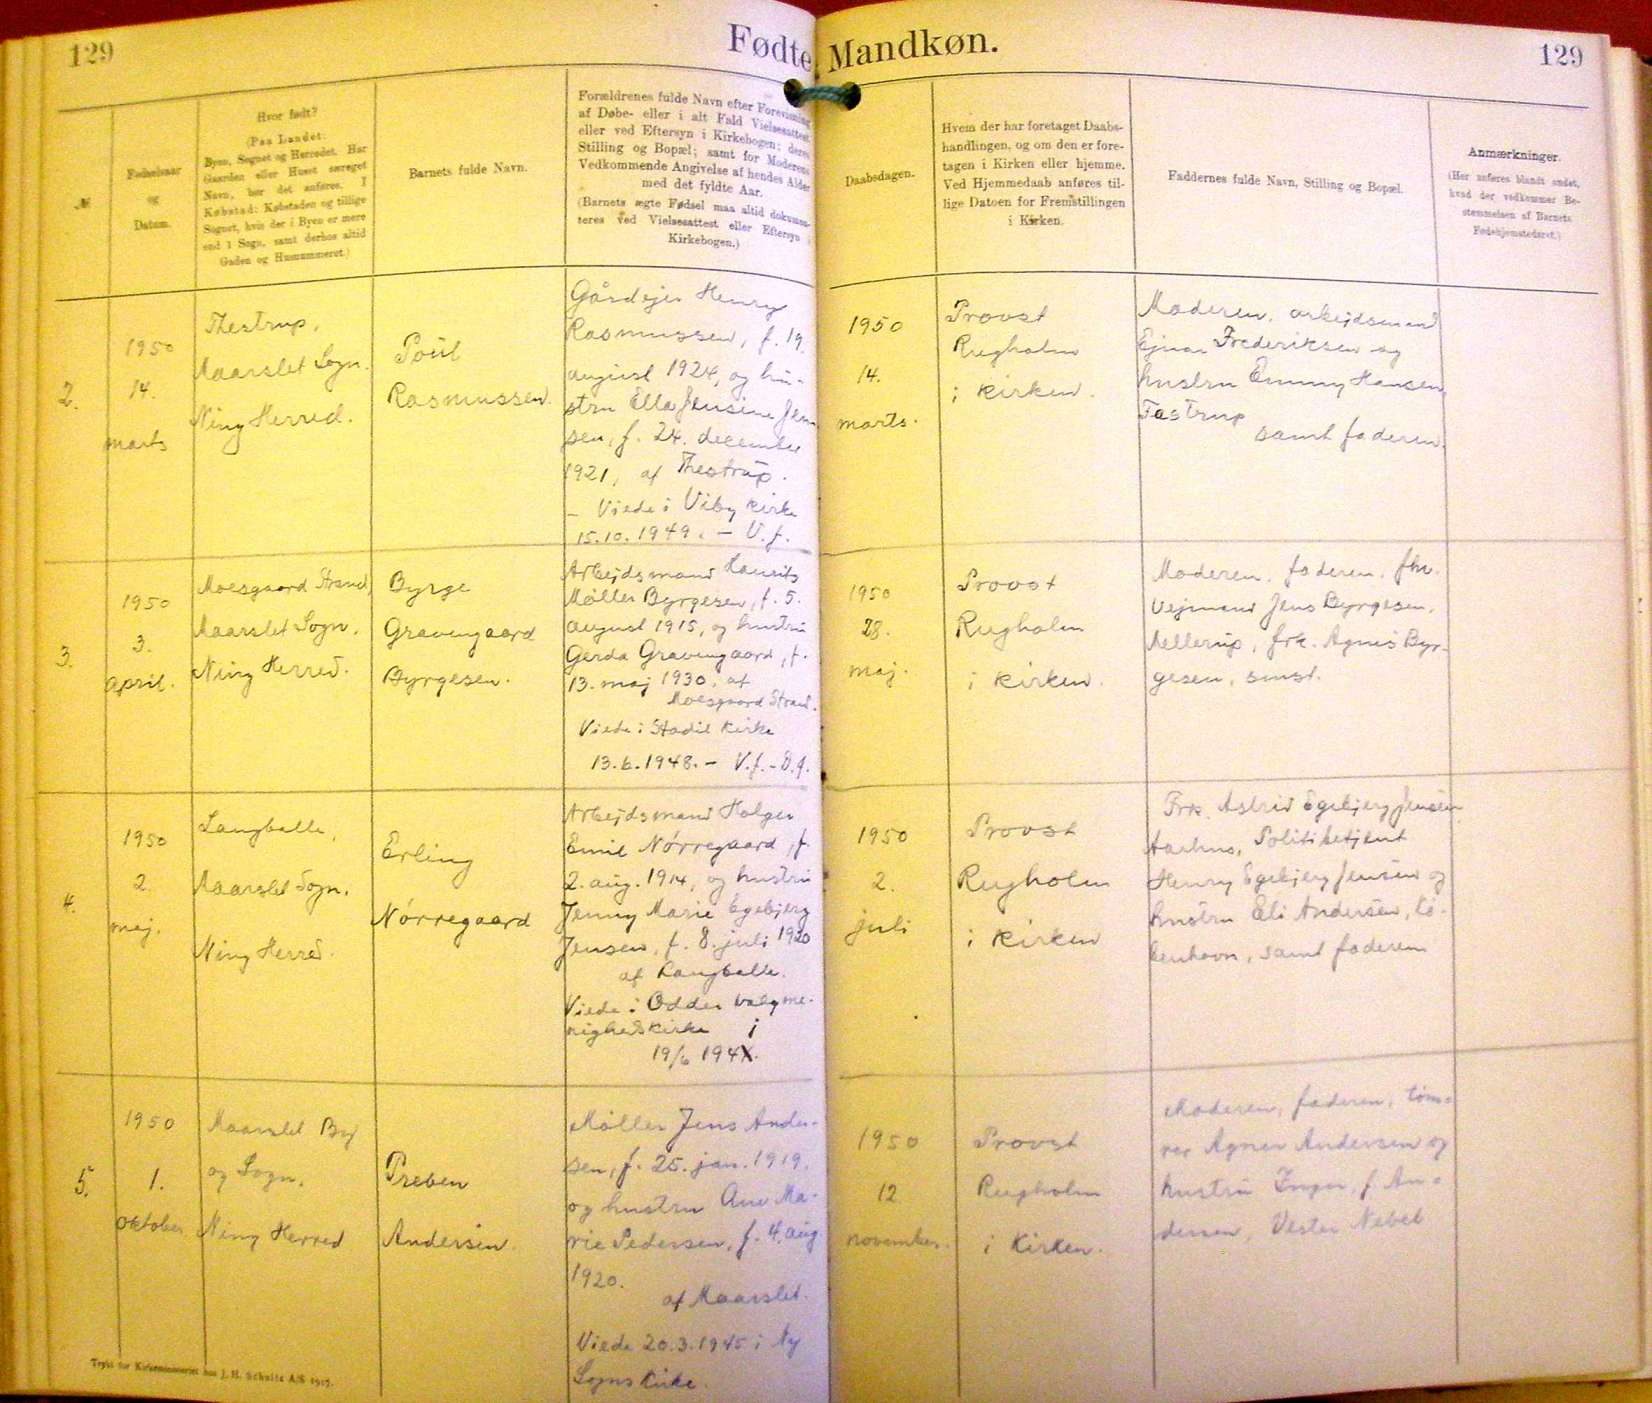 129
Fødte Mandkøn.
129
№
Fødselsaar
og
Datum.
Hvor født?
(Paa Landet:
Byen, Sognet og Herredet. Har
Gaarden eller Huset særeget
Navn, bør det anføres. I
Købstad: Købstaden og tillige
Sognet, hvis der i Byen er mere
end 1 Sogn, samt derhos altid
Gaden og Husnummeret.)
Barnets fulde Navn.
Forældrenes fulde Navn efter Forevisning
af Døbe- eller i alt Fald Vielsesattest
eller ved Eftersyn i Kirkebogen; deres
Stilling og Bopæl; samt for Moderens
Vedkommende Angivelse af hendes Alder
med det fyldte Aar.
(Barnets ægte Fødsel maa altid dokumen-
teres ved Vielsesattest eller Eftersyn i
Kirkebogen.)
Daabsdagen.
Hvem der har foretaget Daabs-
handlingen, og om den er fore-
tagen i Kirken eller hjemme.
Ved Hjemmedaab anføres til-
lige Datoen for Fremstillingen
i Kirken.
Faddernes fulde Navn, Stilling og Bopæl.
Anmærkninger.
(Her anføres blandt andet,
hvad der vedkommer Be-
stemmelsen af Barnets
Fødehjemstedsret.)
2.
1950
14.
marts
Thestrup,
Maarslet Sogn.
Ning Herred.
Poul
Rasmussen.
Gårdejer Henry
Rasmussen, f. 19.
august 1924, og hu-
stru Ella Jensine Jen
sen, f. 24. december
1921, af Thestrup.
– Viede i Viby kirke
15.10.1949. – V.f.
1950
14.
marts.
Provst
Rugholm
i kirken.
Moderen, arbejdsmand
Ejnar Frederiksen og
hustru Emmy Hansen,
Tastrup
samt faderen.
3.
1950
3.
april.
Moesgaard Strand,
Maarslet Sogn.
Ning Herred.
Byrge
Gravengaard
Byrgesen.
Arbejdsmand Laurits
Møller Byrgesen, f. 5.
august 1915, og hustru
Gerda Gravengaard, f.
13. maj 1930. af
Moesgaard Strand.
Viede i Stadil kirke
13.6.1948. – V.f.
1950
28.
maj.
Provst
Rugholm
i kirken.
Moderen, faderen, fhv.
Vejmand Jens Byrgesen,
Mellerup, frk. Agnes Byr-
gesen, smst.
4.
1950
2.
maj.
Langballe,
Maarslet Sogn.
Ning Herred.
Erling
Nørregaard
Arbejdsmand Holger
Emil Nørregaard, f.
2. aug. 1914, og hustru
Jenny Marie Egebjerg
Jensen, f. 8. juli 1920
af Langballe.
Viede i Odder valgme-
nighedskirke i
19/6 194
1950
2.
juli
Provst
Rugholm
i kirken
Frk. Astrid Egebjerg Jensen
Aarhus, Politibetjent
Henry Egebjerg Jensen og
hustru Eli Andersen, kø-
benhavn, samt faderen
5.
1950
1.
oktober
Maarslet By
og Sogn,
Ning Herred
Preben
Andersen.
Møller Jens Ander-
sen, f. 25. jan. 1919.
og hustru Ane Ma-
rie Pedersen, f. 4. aug
1920.
af Maarslet.
Viede 20.3.1945 i Ny
Sogns Kirke.
1950
12
november.
Provst
Rugholm
i Kirken.
Moderen, faderen, tøm-
rer Agner Andersen og
hustru Inger, f. An-
dersen, Vester Nebel
Trykt for Kirkeministeriet hos J. H. Schultz A/S 1917.